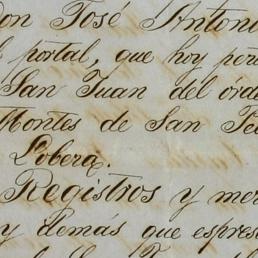 Don José Antoni
portal, que hoy per
San Juan del órde
Montes de San Pe
Lobera.
Registros y mer
y demás que espres